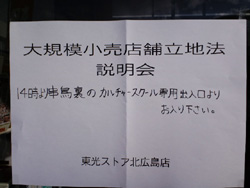 大規模小売店舗立地法
説明会
14時より車馬裏のカルチャースクール専用出入口より
お入り下さい。
東光ストア北広島店